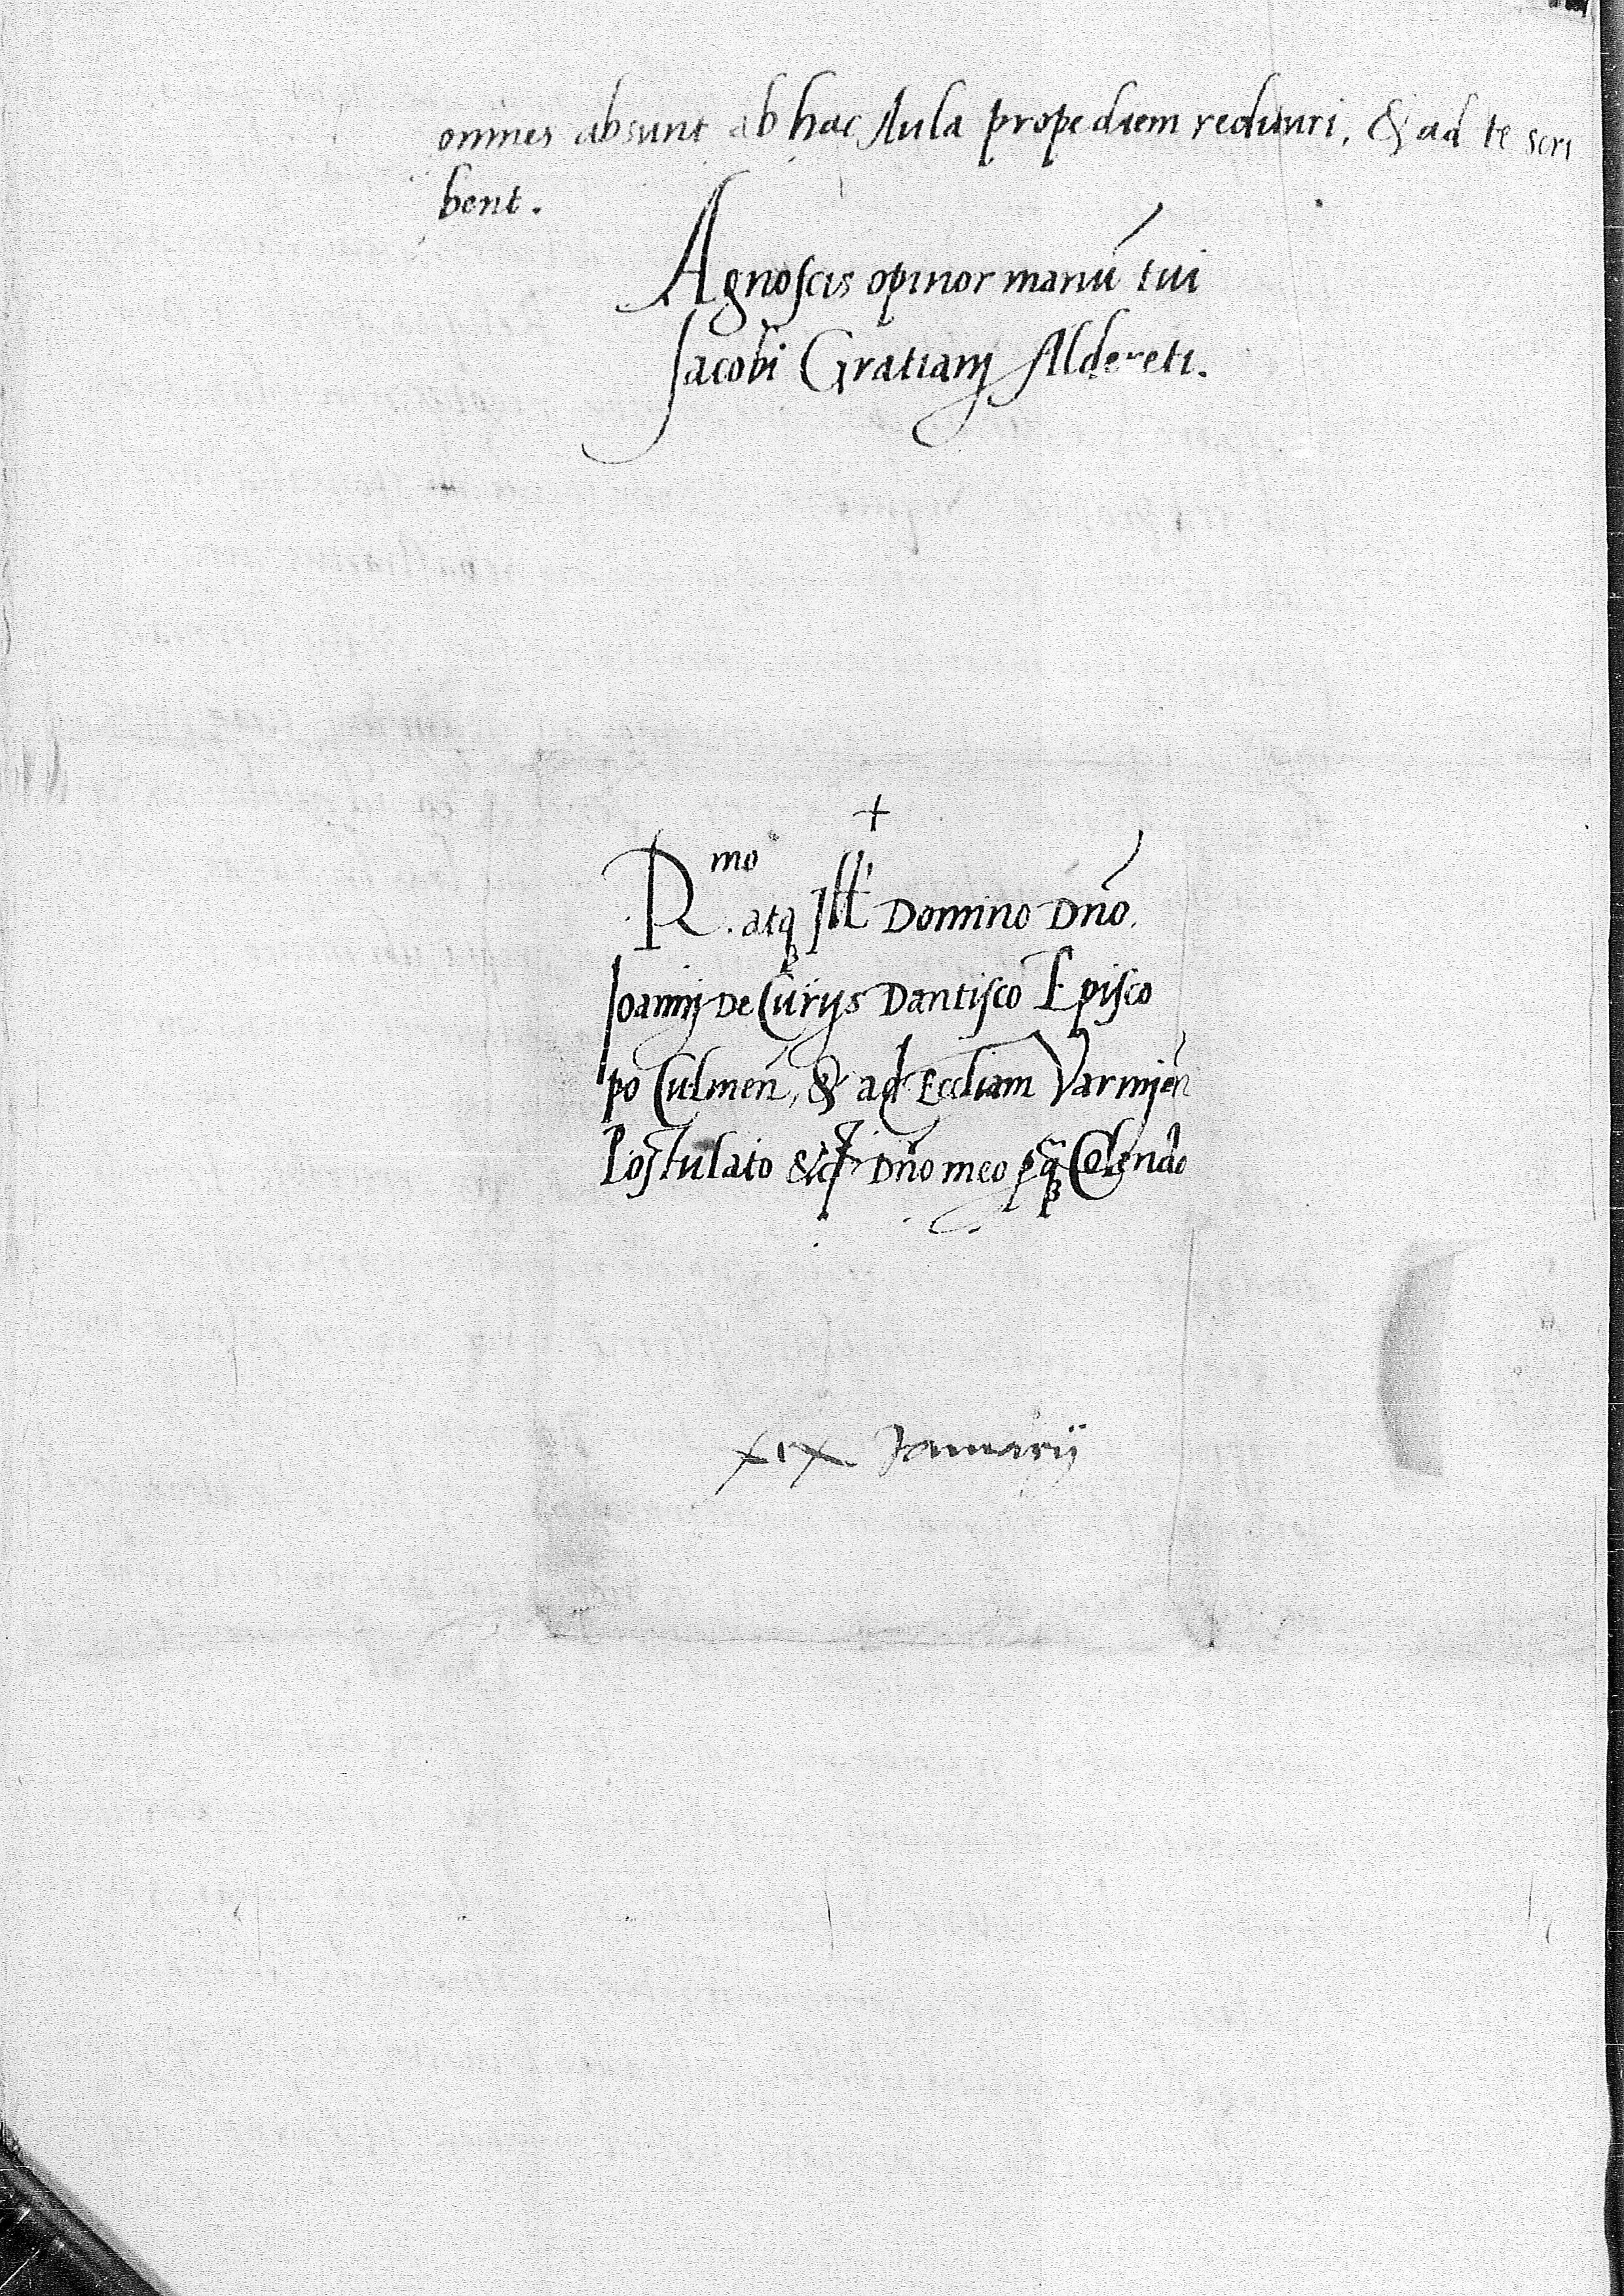 omnes absunt ab hac Aula propediem redituri, & ad te scri
bent.
Agnoscis opinor manū tui
Jacobi Gratiani Aldereti.
+
R.mo atq Ill' Domino Dño.
Ioanni De Curijs Dantisco Episco
po Culmeñ, & ad Eccliam Varmieñ
Postulato &c Dño meo Colendo
xix Januarij